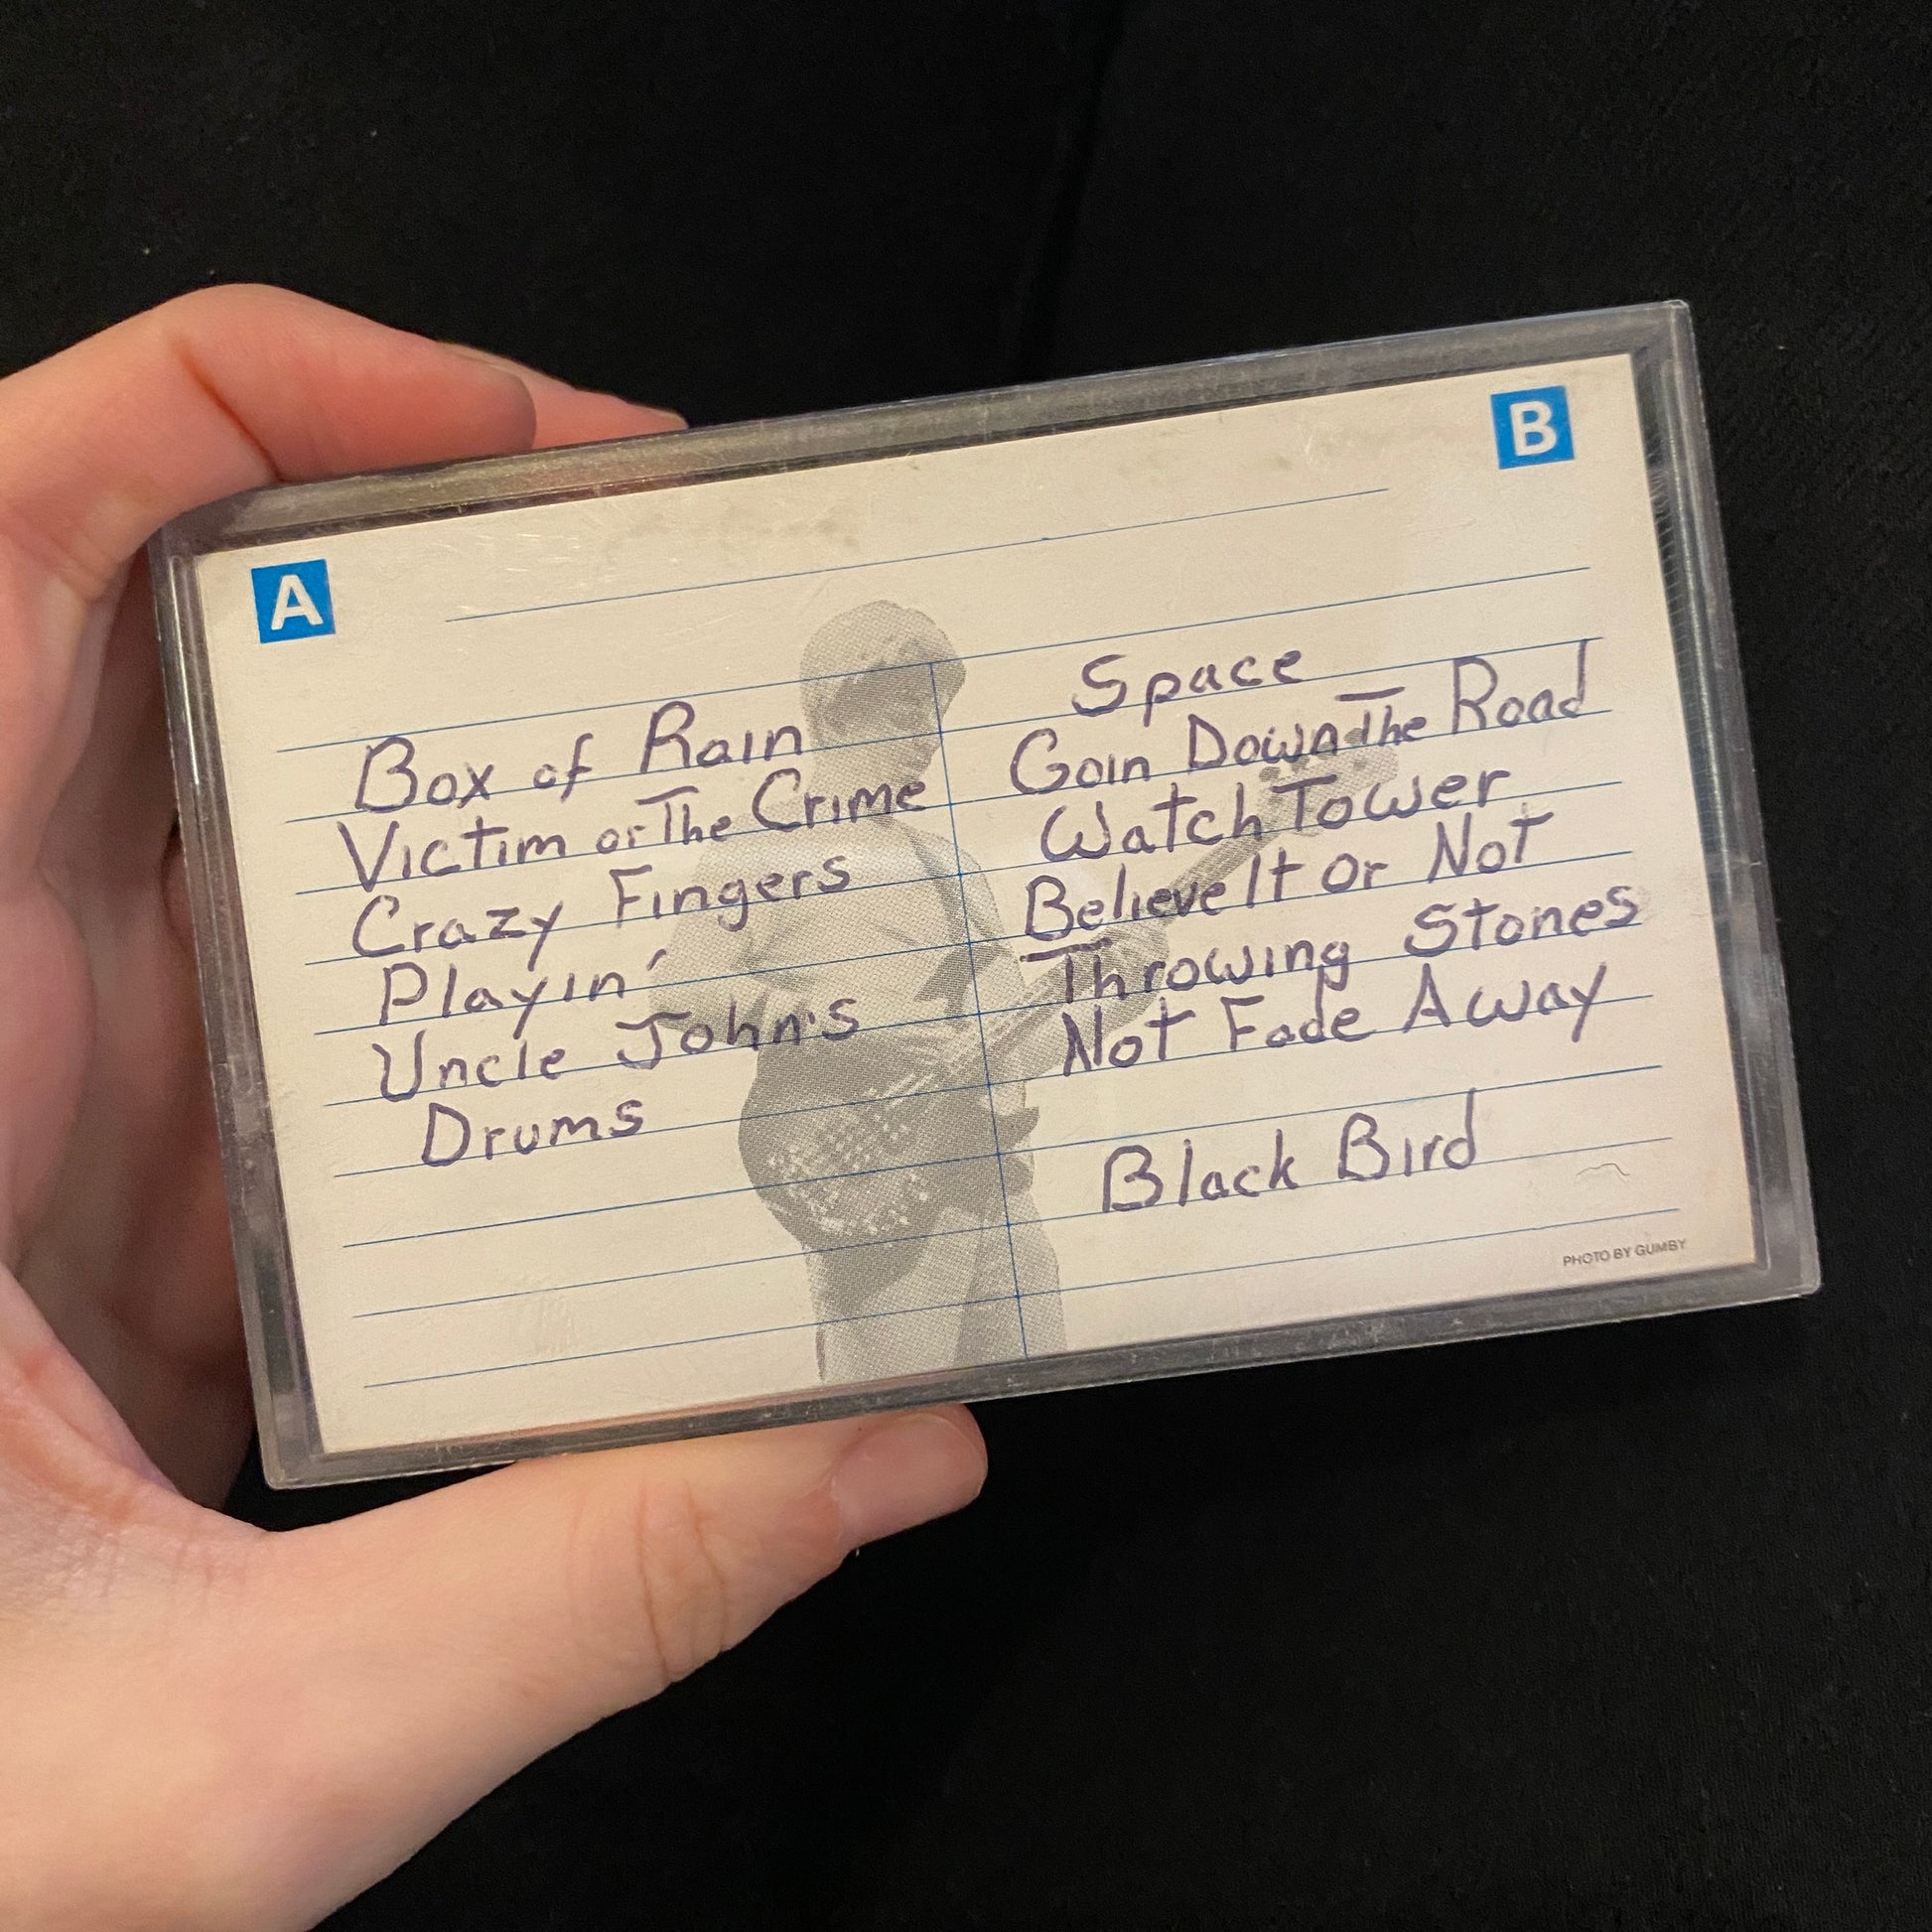 A
Box of Rain
Victim or The Crime
Crazy Fingers
Playin'
Uncle John's
Drums
B
Space
Goin Down The Road
Watch Tower
Believe It Or Not
Throwing Stones
Not Fade Away
Black Bird
PHOTO BY GUMBY